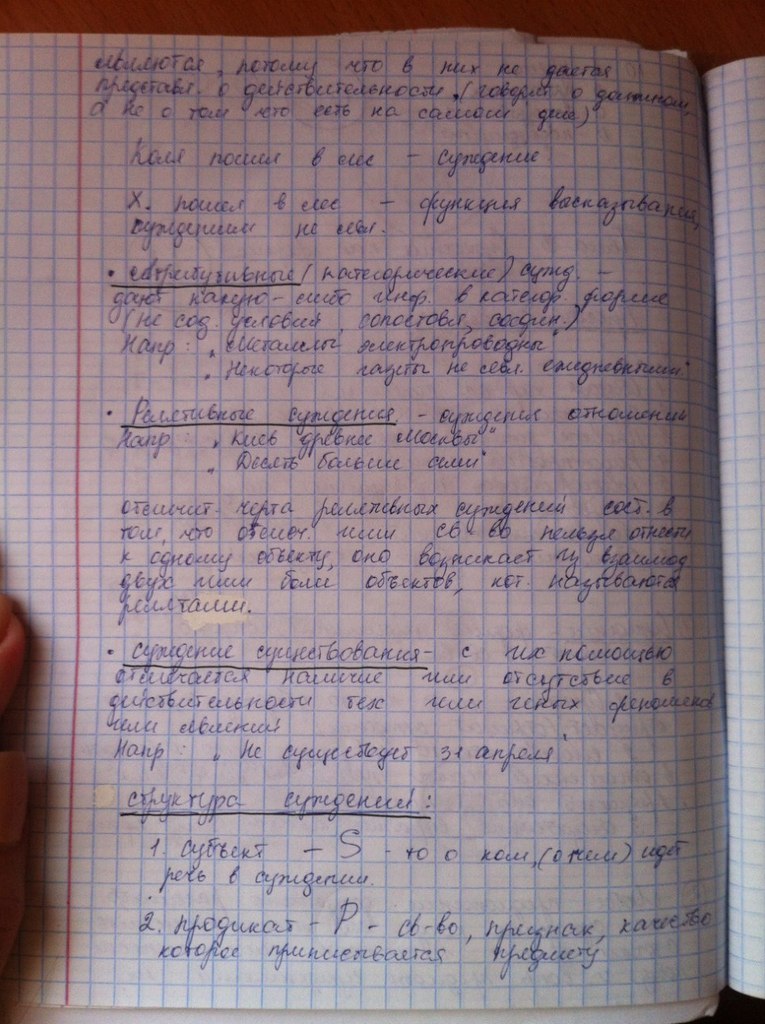 являются, потому что в них не дается
представл. о действительности (говорят о должном,
а не о том что есть на самом деле)
Коля пошел в лес – суждение
Х. пошел в лес – функция высказывания,
суждением не явл.
• Атрибутивные (категорические) сужд. –
дают какую-либо инф. в категор. форме
(не сод. условий, сопоставл, соедин.)
Напр: „Металлы электропроводны"
„Некоторые газеты не явл. ежедневными"
• Релятивные суждения – суждения отношений
Напр: „Киев древнее Москвы"
„Десять больше семи"
отличит. черта релятивных суждений сост. в
том, что отнош. или св-во нельзя отнести
к одному объекту, оно возникает из взаимод
двух или более объектов, кот. называются
релятами.
• суждение существования – с их помощью
отмечается наличие или отсутствие в
действительности тех или иных феноменов
или явлений
Напр: „Не существует 31 апреля"
структура суждений:
1. субъект – S – то о ком, (о чем) идет
речь в суждении.
2. предикат – P – св-во, признак, качество
которое приписывается предмету